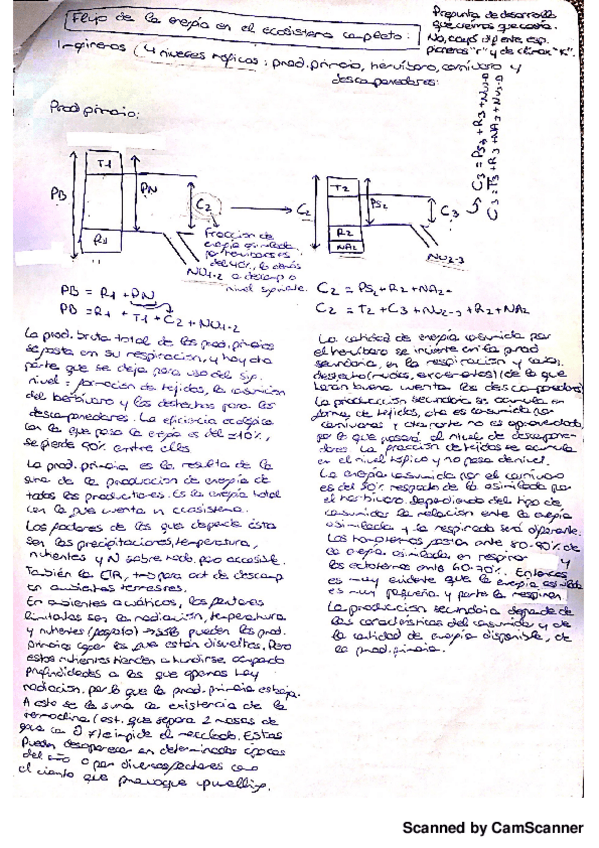 Flujo de la energía en el ecosistema completo:
Pregunta de desarrollo
que veremos que cuesta.
No, cayó dif ente esp.
pioneras "r" y de clímax "K".
Imaginemos (4 niveles tróficos: prod. primario, herbívoro, carnívoro y
descomponedores:
Prod primario:
C3 = PS3 + R3 + NA3
C3 = T3 + R3 + NA3 +
PB
T1
R1
PN
C2
C2
T2
R2
NA2
PS2
C3
NU1-2
NU2-3
Fracción de
energía asimilada
por herbívoros es
del
nivel siguiente.
PB = R1 + PN
PB = R1 + T1 + C2 + NU1-2
C2 = PS2 + R2 + NA2
C2 = T2 + C3 + NU2-3 + R2 + NA2
La prod. bruta total de los prod. primarios
se gasta en su respiración, y hay otra
parte que se deja para uso del sig.
nivel: formación de tejidos, la consumición
del herbívoro y los desechos para los
descomponedores. La eficiencia ecológica
con la que pasa la energía es del ≈10%,
se pierde 90% entre ellos
La prod. primaria es la resulta de la
suma de la producción de energía de
todos los productores. Es la energía total
con la que cuenta un ecosistema.
Los factores de los que depende ésta
son las precipitaciones, temperatura,
nutrientes y N sobre todo, poco accesible.
También la CIR, tmp para act de descomp
en ambientes terrestres.
En ambientes acuáticos, los factores
limitantes son la radiación, temperatura
y nutrientes (fosfato) → solo pueden los prod.
primarios coger los que están disueltos. Pero
estos nutrientes tienden a hundirse, ocupando
profundidades a las que apenas hay
radiación, por lo que la prod. primaria es baja.
A esto se le suma la existencia de la
termoclina (est. que separa 2 masas de
agua con
Estas
pueden desaparecer en determinadas épocas
del año o por diversos factores como
el viento que provoque upwelling.
La cantidad de energía consumida por
el herbívoro se invierte en la prod
secundaria, en la respiración y
desecho (mudas, excrementos) (de lo que
darán buena cuenta los descomponedores)
La producción secundaria se acumula en
forma de tejidos, otra es consumida por
carnívoros y otra parte no es aprovechada,
por lo que pasará al nivel de descompone-
dores. La fracción de tejidos se acumula
en el nivel trófico y no pasa de nivel.
La energía consumida por el carnívoro
es del 30% respecto de la asimilada por
el herbívoro. Dependiendo del tipo de
consumidor la relación entre la energía
asimilada y la respirada será diferente.
Los homeotermos gastan entre 80-90% de
la energía asimilada en respirar y
los ectotermos entre 60-70%. Entonces
es muy evidente que la energía asimilada
es muy pequeña y parte la respiran
La producción secundaria depende de
las características del consumidor y de
la cantidad de energía disponible, de
la prod. primaria.
Scanned by CamScanner